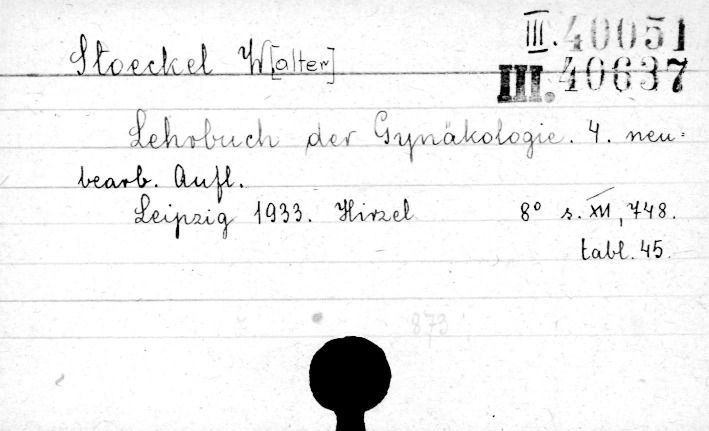 III. 40051
Stoeckel W[alter]
III. 40637
Lehrbuch der Gynäkologie. 4. neu=
bearb. Aufl.
Leipzig 1933. Hirzel 8° s. XVI, 748.
tabl. 45.
873